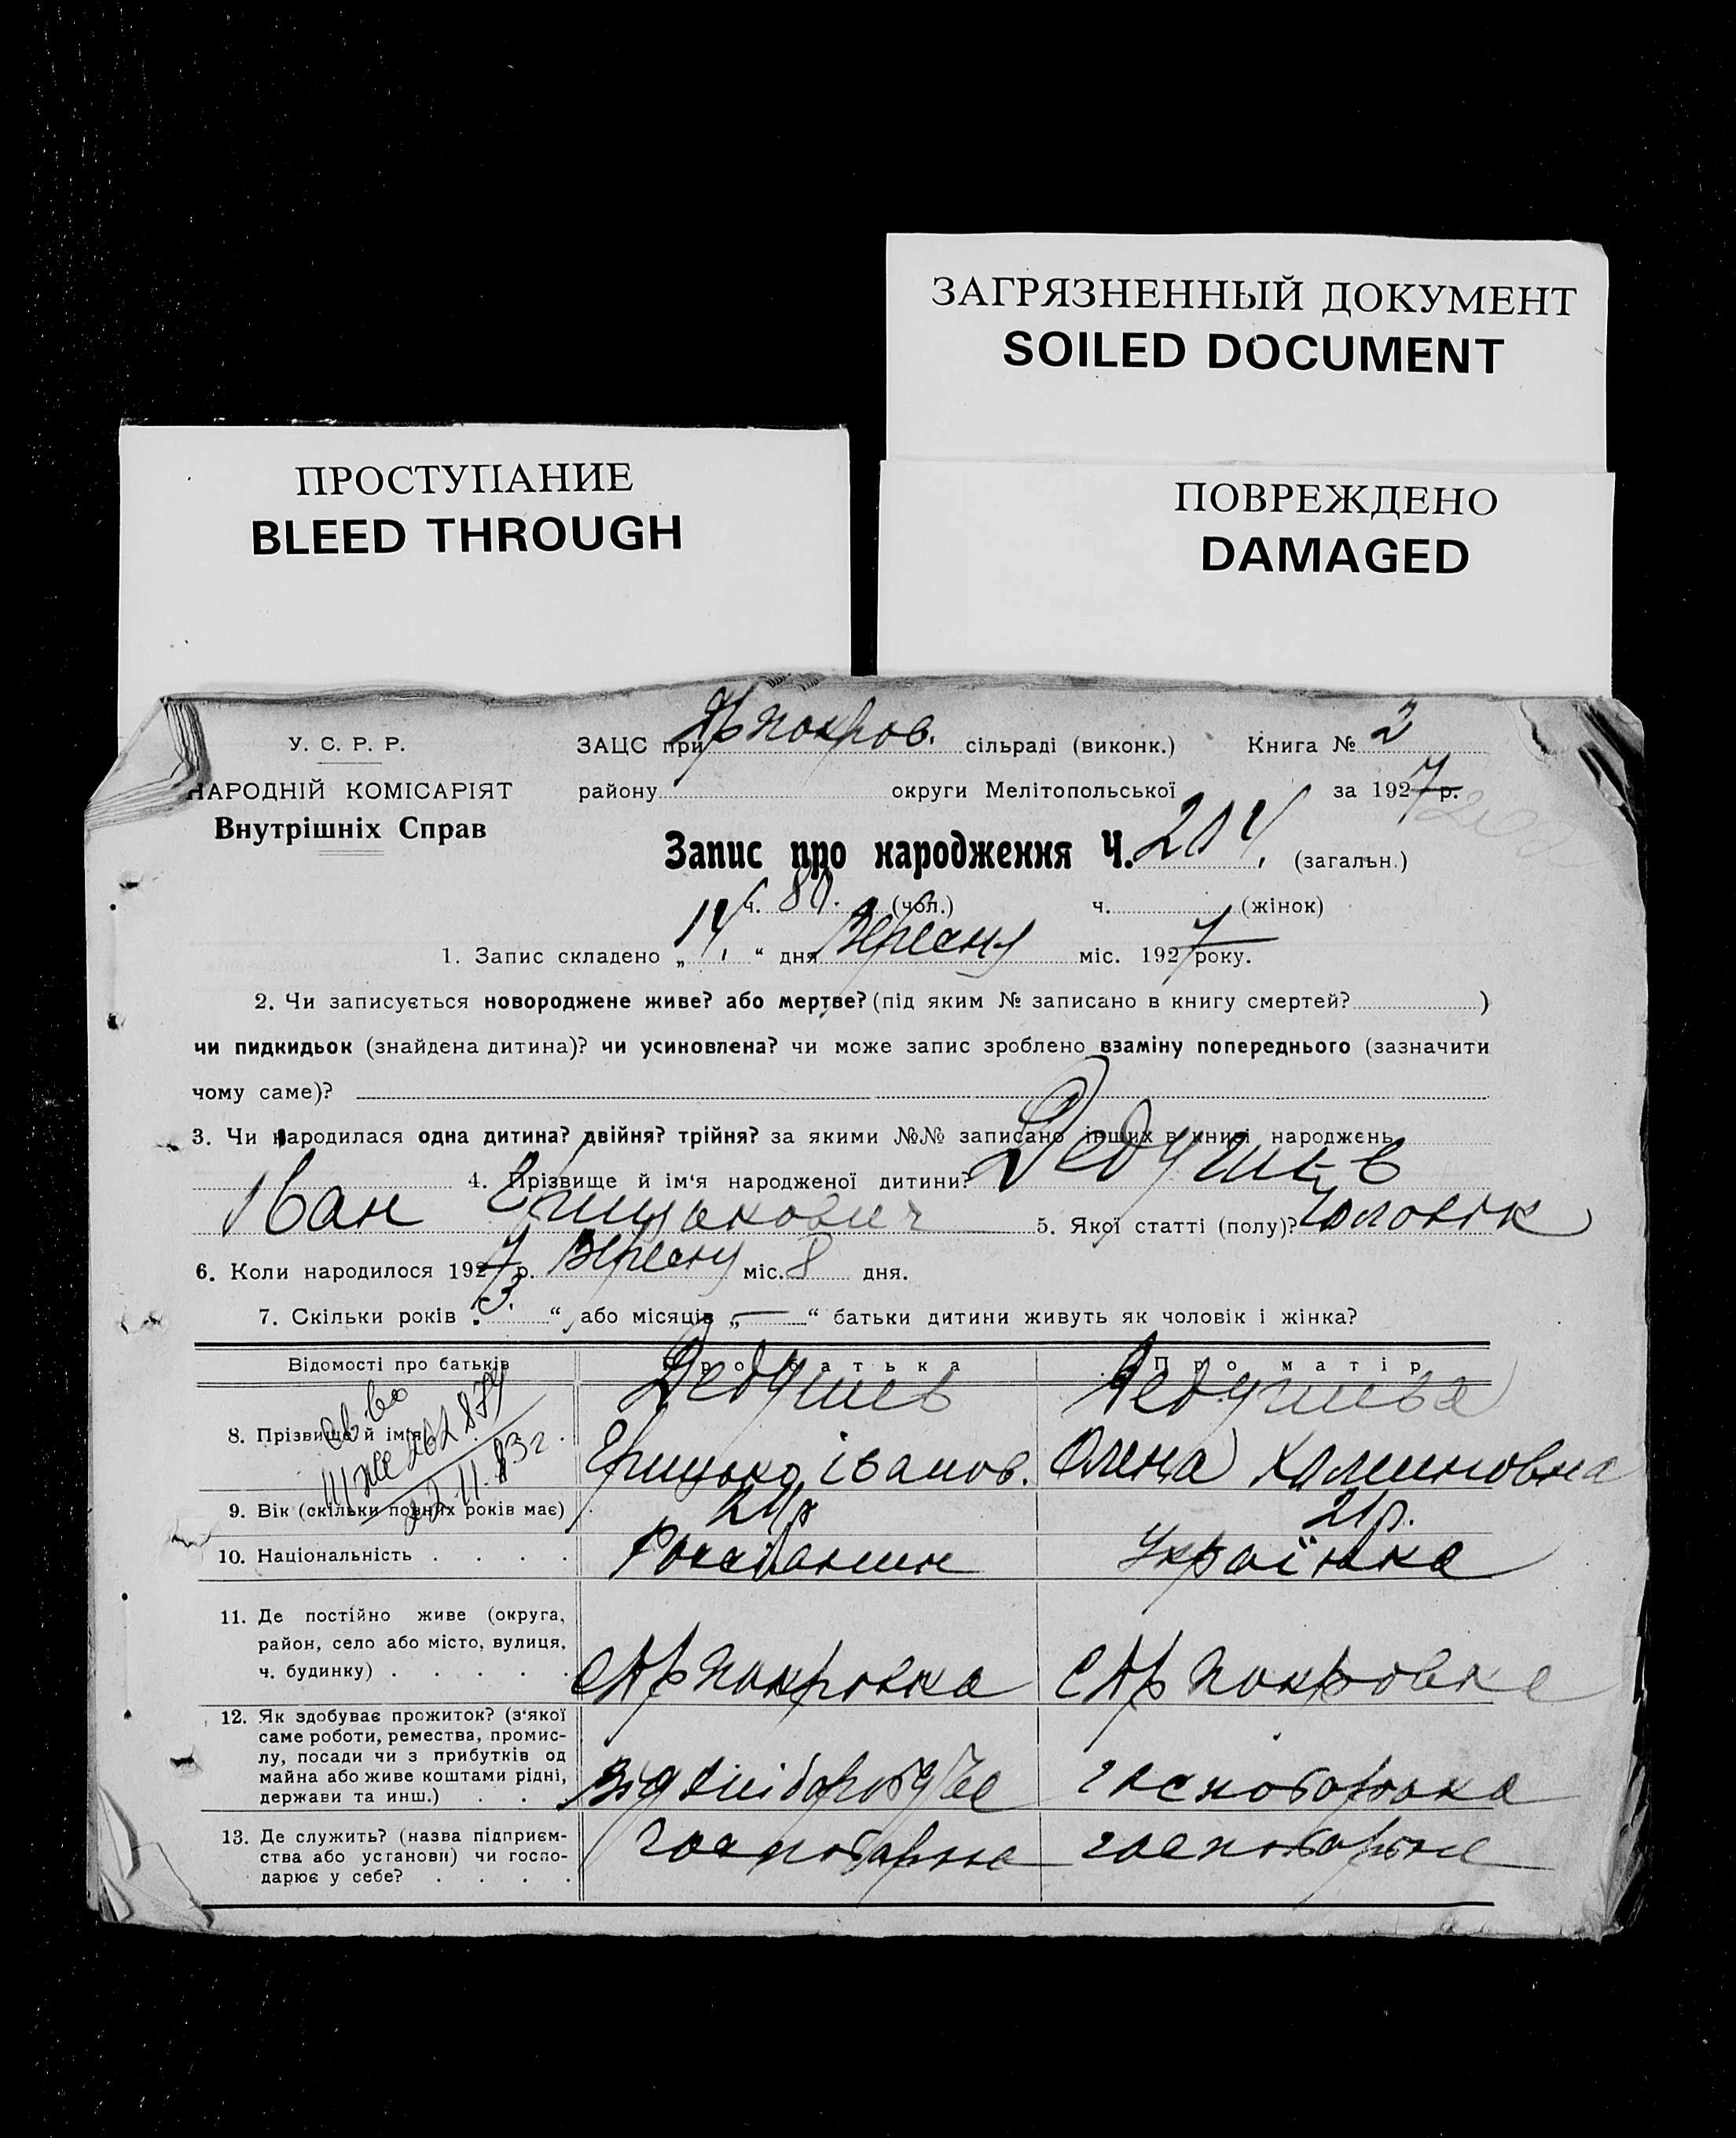 ЗАГРЯЗНЕННЫЙ ДОКУМЕНТ
SOILED DOCUMENT
ПРОСТУПАНИЕ
BLEED THROUGH
ПОВРЕЖДЕНО
DAMAGED
У. С. Р. Р.
ЗАЦС при покров. сільраді (виконк.) Книга № 2
НАРОДНІЙ КОМІСАРІЯТ
району округи Мелітопольської за 1927 р.
Внутрішніх Справ
Запис про народження Ч. 204 (загальн.)
ч. 80. (чол.) ч. (жінок)
1. Запис складено „ 14 “ дня Вересня міс. 1927 року.
2. Чи записується новороджене живе? або мертве? (під яким № записано в книгу смертей? )
чи пидкидьок (знайдена дитина)? чи усиновлена? чи може запис зроблено взаміну попереднього (зазначити
чому саме)?
3. Чи народилася одна дитина? двійня? трійня? за якими №№ записано інших в книзі народжень
4. Прізвище й ім‘я народженої дитини? Дедушев
Іван Грицькович 5. Якої статті (полу)? Чоловік
6. Коли народилося 1927 р. Вересня міс. 8 дня.
7. Скільки років „ 3. “ або місяців „ — “ батьки дитини живуть як чоловік і жінка?
Відомості про батьків
Про батька
Про матір
8. Прізвище й ім‘я
Дедушев
Грицько Іванов.
Дедушева
Олена
св-во
22.11.83г.
9. Вік (скільки повних років має)
21р.
10. Національність . . . .
Українка
11. Де постійно живе (округа,
район, село або місто, вулиця,
ч. будинку) . . . . .
покровка
покровка
12. Як здобуває прожиток? (з‘якої
саме роботи, ремества, промис-
лу, посади чи з прибутків од
майна або живе коштами рідні,
держави та инш.) . . .
13. Де служить? (назва підприєм-
ства або установи) чи госпо-
дарює у себе? . . . .